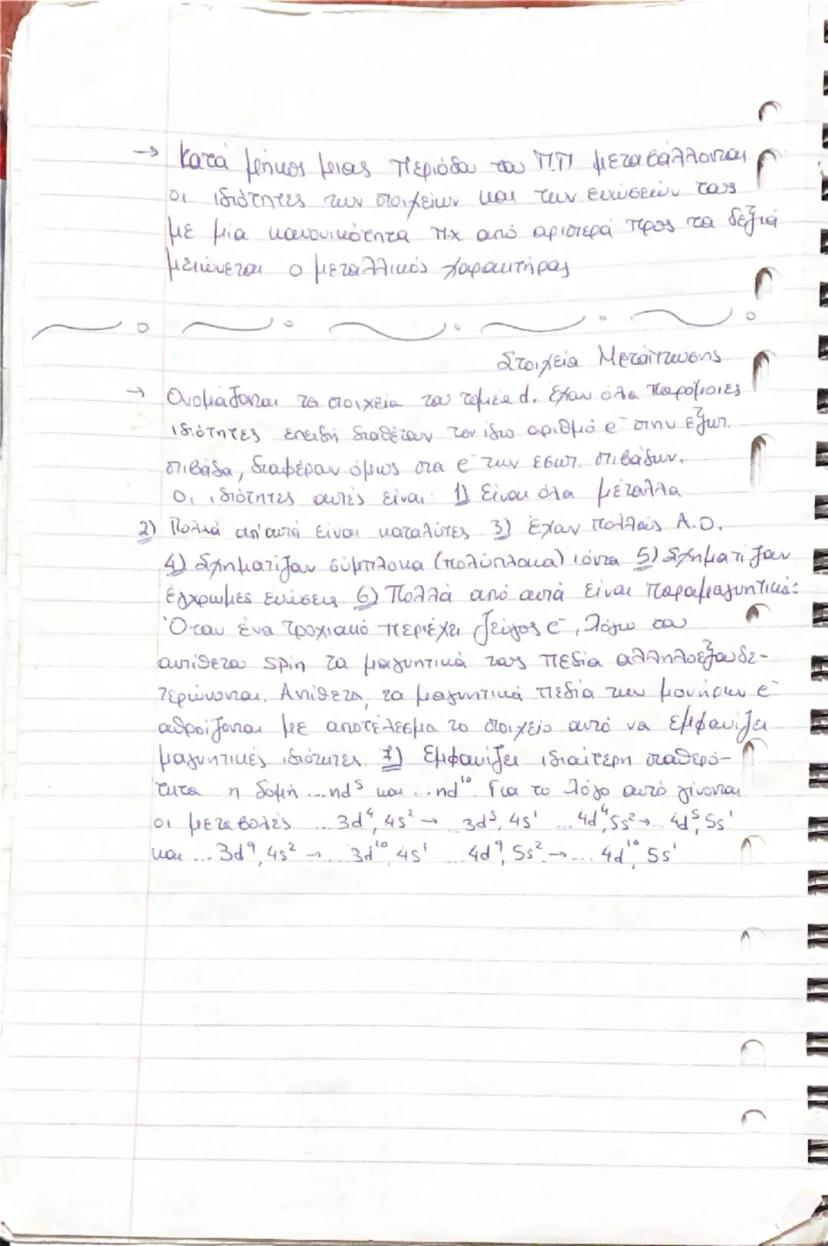 → Κατά μήκος μιας περιόδου του Π.Π μεταβάλλονται
οι ιδιότητες των στοιχείων και των ενώσεών τους
με μία κανονικότητα π.χ από αριστερά προς τα δεξιά
μειώνεται ο μεταλλικός χαρακτήρας
Στοιχεία Μετάπτωσης
→ Ονομάζονται τα στοιχεία του τομέα d. Έχουν όλα παρόμοιες
ιδιότητες επειδή διαθέτουν τον ίδιο αριθμό e⁻ στην εξωτ.
στιβάδα, διαφέρουν όμως στα e⁻ των εσωτ. στιβάδων.
Οι ιδιότητες αυτές είναι: 1) Είναι όλα μέταλλα
2) Πολλά απ' αυτά είναι καταλύτες 3) Έχουν πολλούς Α.Ο.
4) Σχηματίζουν σύμπλοκα (πολύπλοκα) ιόντα 5) Σχηματίζουν
έγχρωμες ενώσεις 6) Πολλά από αυτά είναι παραμαγνητικά:
Όταν ένα τροχιακό περιέχει ζεύγος e⁻, λόγω του
αντίθετου spin τα μαγνητικά τους πεδία αλληλοεξουδε-
τερώνονται. Αντίθετα, τα μαγνητικά πεδία των μονήρων e⁻
αθροίζονται με αποτέλεσμα το στοιχείο αυτό να εμφανίζει
μαγνητικές ιδιότητες. 7) Εμφανίζει ιδιαίτερη σταθερό-
τητα η δομή ...nd⁵ και ...nd¹⁰. Για το λόγο αυτό γίνονται
οι μεταβολές ...3d⁴, 4s² → 3d⁵, 4s¹ ...4d⁴, 5s² → 4d⁵, 5s¹
και ...3d⁹, 4s² → ...3d¹⁰, 4s¹ 4d⁹, 5s² → ... 4d¹⁰, 5s¹